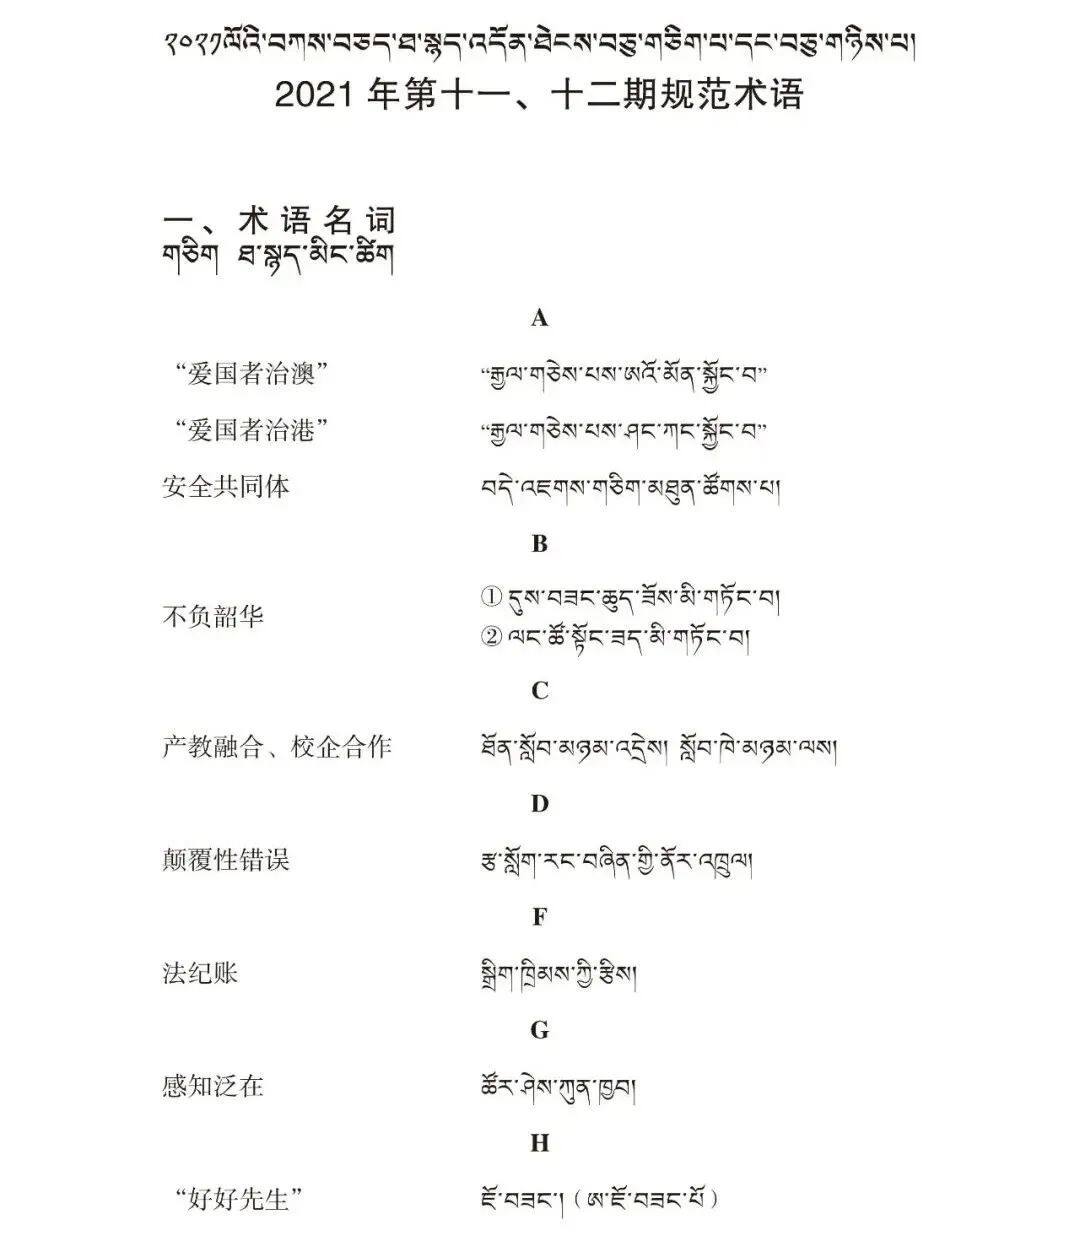 ༢༠༢༡ལོའི་བཀས་བཅད་ཐ་སྙད་འདོན་ཐེངས་བཅུ་གཅིག་པ་དང་བཅུ་གཉིས་པ།
2021 年第十一、十二期规范术语
一、术语名词
གཅིག ཐ་སྙད་མིང་ཚིག
A
“爱国者治澳” “རྒྱལ་གཅེས་པས་ཨའོ་མོན་སྐྱོང་བ”
“爱国者治港” “རྒྱལ་གཅེས་པས་ཤང་ཀང་སྐྱོང་བ”
安全共同体 བདེ་འཇགས་གཅིག་མཐུན་ཚོགས་པ།
B
不负韶华 ① དུས་བཟང་ཆུད་ཟོས་མི་གཏོང་བ།
② ལང་ཚོ་སྟོང་ཟད་མི་གཏོང་བ།
C
产教融合、校企合作 ཐོན་སློབ་མཉམ་འདྲེས། སློབ་ཁེ་མཉམ་ལས།
D
颠覆性错误 རྩ་སློག་རང་བཞིན་གྱི་ནོར་འཁྲུལ།
F
法纪账 སྒྲིག་ཁྲིམས་ཀྱི་རྩིས།
G
感知泛在 ཚོར་ཤེས་ཀུན་ཁྱབ།
H
“好好先生” ཇོ་བཟང་། (ཨ་ཇོ་བཟང་པོ)